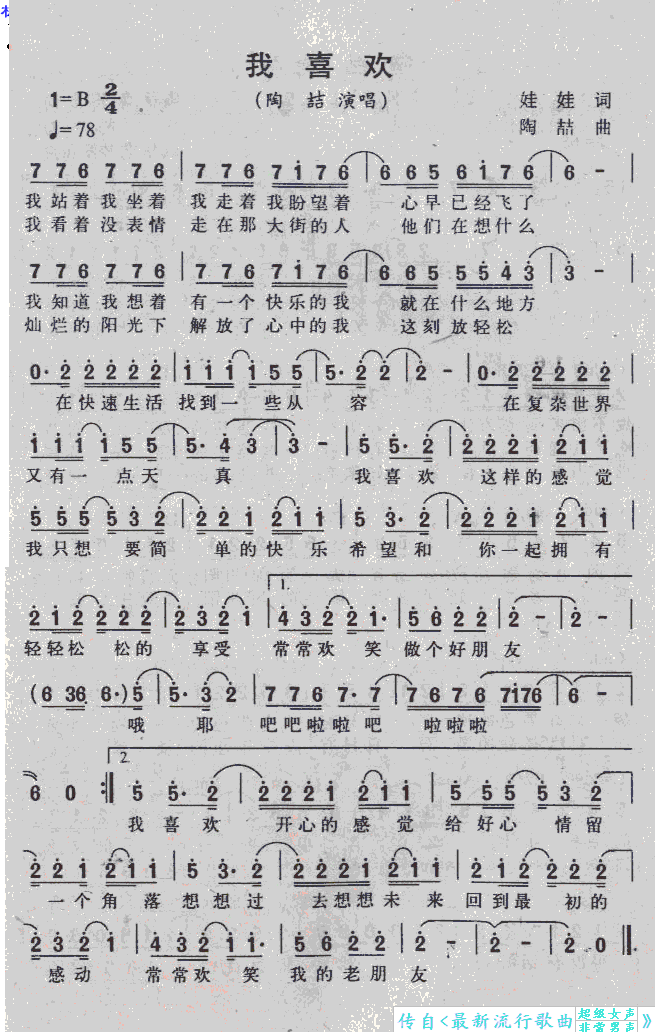 我喜欢
1=B 2/4 (陶喆演唱) 娃娃词
♩=78 陶喆曲
7 7 6 7 7 6 | 7 7 6 7 i 7 6 | 6 6 5 6 i 7 6 | 6 -
我站着我坐着 我走着我盼望着 心早已经飞了
我看着没表情 走在那大街的人 他们在想什么
7 7 6 7 7 6 | 7 7 6 7 i 7 6 | 6 6 5 5 5 4 3 | 3 -
我知道我想着 有一个快乐的我 就在什么地方
灿烂的阳光下 解放了心中的我 这刻放轻松
0· 2 2 2 2 2 | i i i i 5 5 | 5· 2 2 | 2 - | 0· 2 2 2 2 2
在快速生活 找到一些从容 在复杂世界
i i i i 5 5 | 5· 4 3 | 3 - | 5 5· 2 | 2 2 2 i 2 i i
又有一点天真 我喜欢 这样的感觉
5 5 5 5 3 2 | 2 2 i 2 i i | 5 3· 2 | 2 2 2 i 2 i i
我只想要简 单的快乐 希望和 你一起拥有
1.
2 i 2 2 2 2 | 2 3 2 i | 4 3 2 2 i· | 5 6 2 2 | 2 - | 2 -
轻轻松松的 享受 常常欢笑 做个好朋友
(6 36 6·) 5 | 5· 3 2 | 7 7 6 7· 7 | 7 6 7 6 7i76 | 6 -
哦耶 吧吧啦啦吧 啦啦啦
2.
6 0 :| 5 5· 2 | 2 2 2 i 2 i i | 5 5 5 5 3 2
我喜欢 开心的感觉 给好心情留
2 2 i 2 i i | 5 3· 2 | 2 2 2 i 2 i i | 2 i 2 2 2 2
一个角落 想想过 去想想未来 回到最初的
2 3 2 i | 4 3 2 i i· | 5 6 2 2 | 2 - | 2 - | 2 0 ‖
感动 常常欢笑 我的老朋友
传自<最新流行歌曲 超级女声 非常男声》